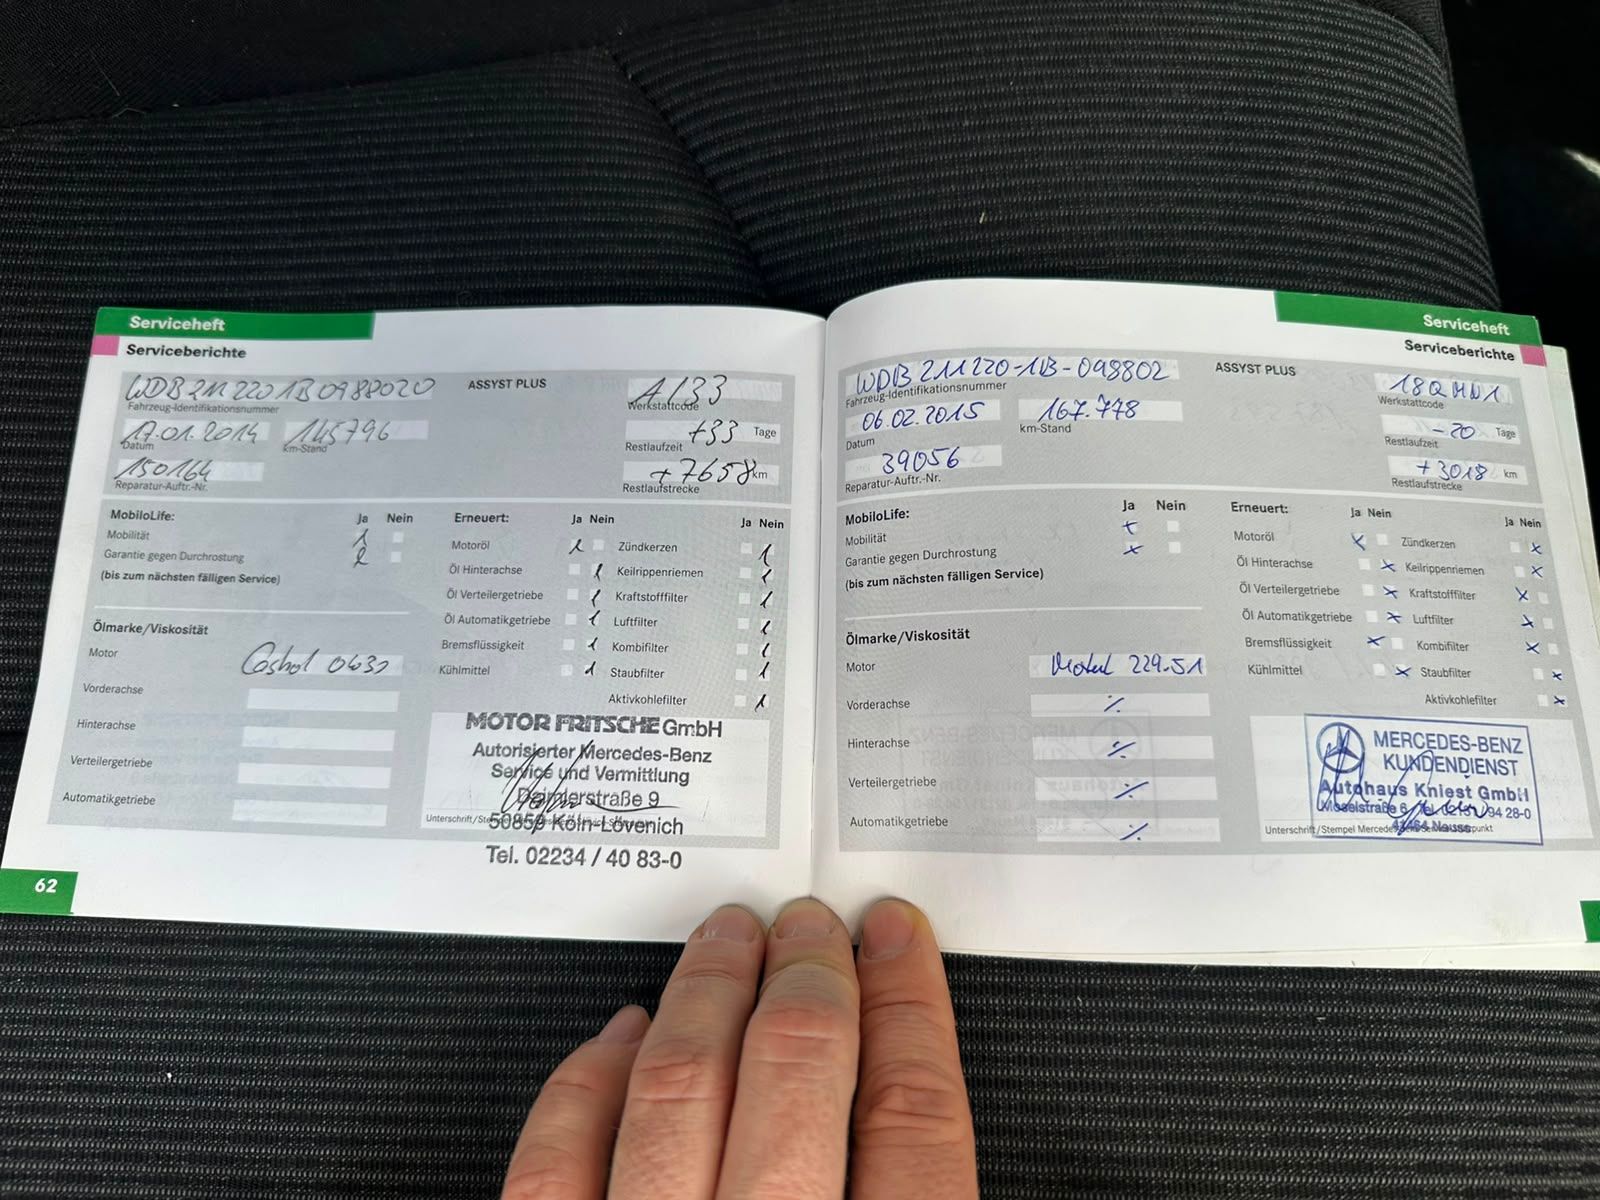 Serviceheft
Serviceberichte
WDB 211 220 1B 0988020
ASSYST PLUS
A/33
Fahrzeug-Identifikationsnummer
Werkstattcode
17.01.2014
145796
+33 Tage
Datum
km-Stand
Restlaufzeit
150164
+7658 km
Reparatur-Auftr.-Nr.
Restlaufstrecke
MobiloLife:
Ja Nein
Mobilität
Garantie gegen Durchrostung
(bis zum nächsten fälligen Service)
Erneuert:
Ja Nein
Ja Nein
Motoröl
Zündkerzen
Öl Hinterachse
Keilrippenriemen
Öl Verteilergetriebe
Kraftstofffilter
Öl Automatikgetriebe
Luftfilter
Bremsflüssigkeit
Kombifilter
Kühlmittel
Staubfilter
Aktivkohlefilter
Ölmarke/Viskosität
Motor
Vorderachse
Hinterachse
Verteilergetriebe
Automatikgetriebe
MOTOR FRITSCHE GmbH
Autorisierter Mercedes-Benz
Service und Vermittlung
Daimlerstraße 9
50859 Köln-Lövenich
Tel. 02234 / 40 83-0
62
Serviceheft
Serviceberichte
WDB 211 220-1B-098802
ASSYST PLUS
18QMN1
Fahrzeug-Identifikationsnummer
Werkstattcode
06.02.2015
167.778
-20 Tage
Datum
km-Stand
Restlaufzeit
39056
+3018 km
Reparatur-Auftr.-Nr.
Restlaufstrecke
MobiloLife:
Ja Nein
Mobilität
Garantie gegen Durchrostung
(bis zum nächsten fälligen Service)
Erneuert:
Ja Nein
Ja Nein
Motoröl
Zündkerzen
Öl Hinterachse
Keilrippenriemen
Öl Verteilergetriebe
Kraftstofffilter
Öl Automatikgetriebe
Luftfilter
Bremsflüssigkeit
Kombifilter
Kühlmittel
Staubfilter
Aktivkohlefilter
Ölmarke/Viskosität
Motor 229.51
Vorderachse %
Hinterachse %
Verteilergetriebe %
Automatikgetriebe %
MERCEDES-BENZ
KUNDENDIENST
Autohaus Kniest GmbH
Moselstraße 6 94 28-0
Neuss